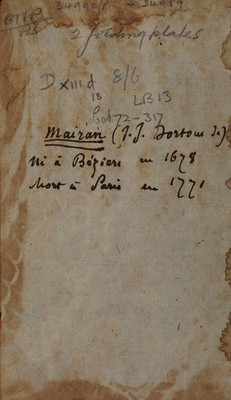 2 folding plates
D XIII d 8/6
13 LB13
Cat 72-317
Mairan (J. J. Dortous de)
Né à Béziers en 1678
Mort à Paris en 1771